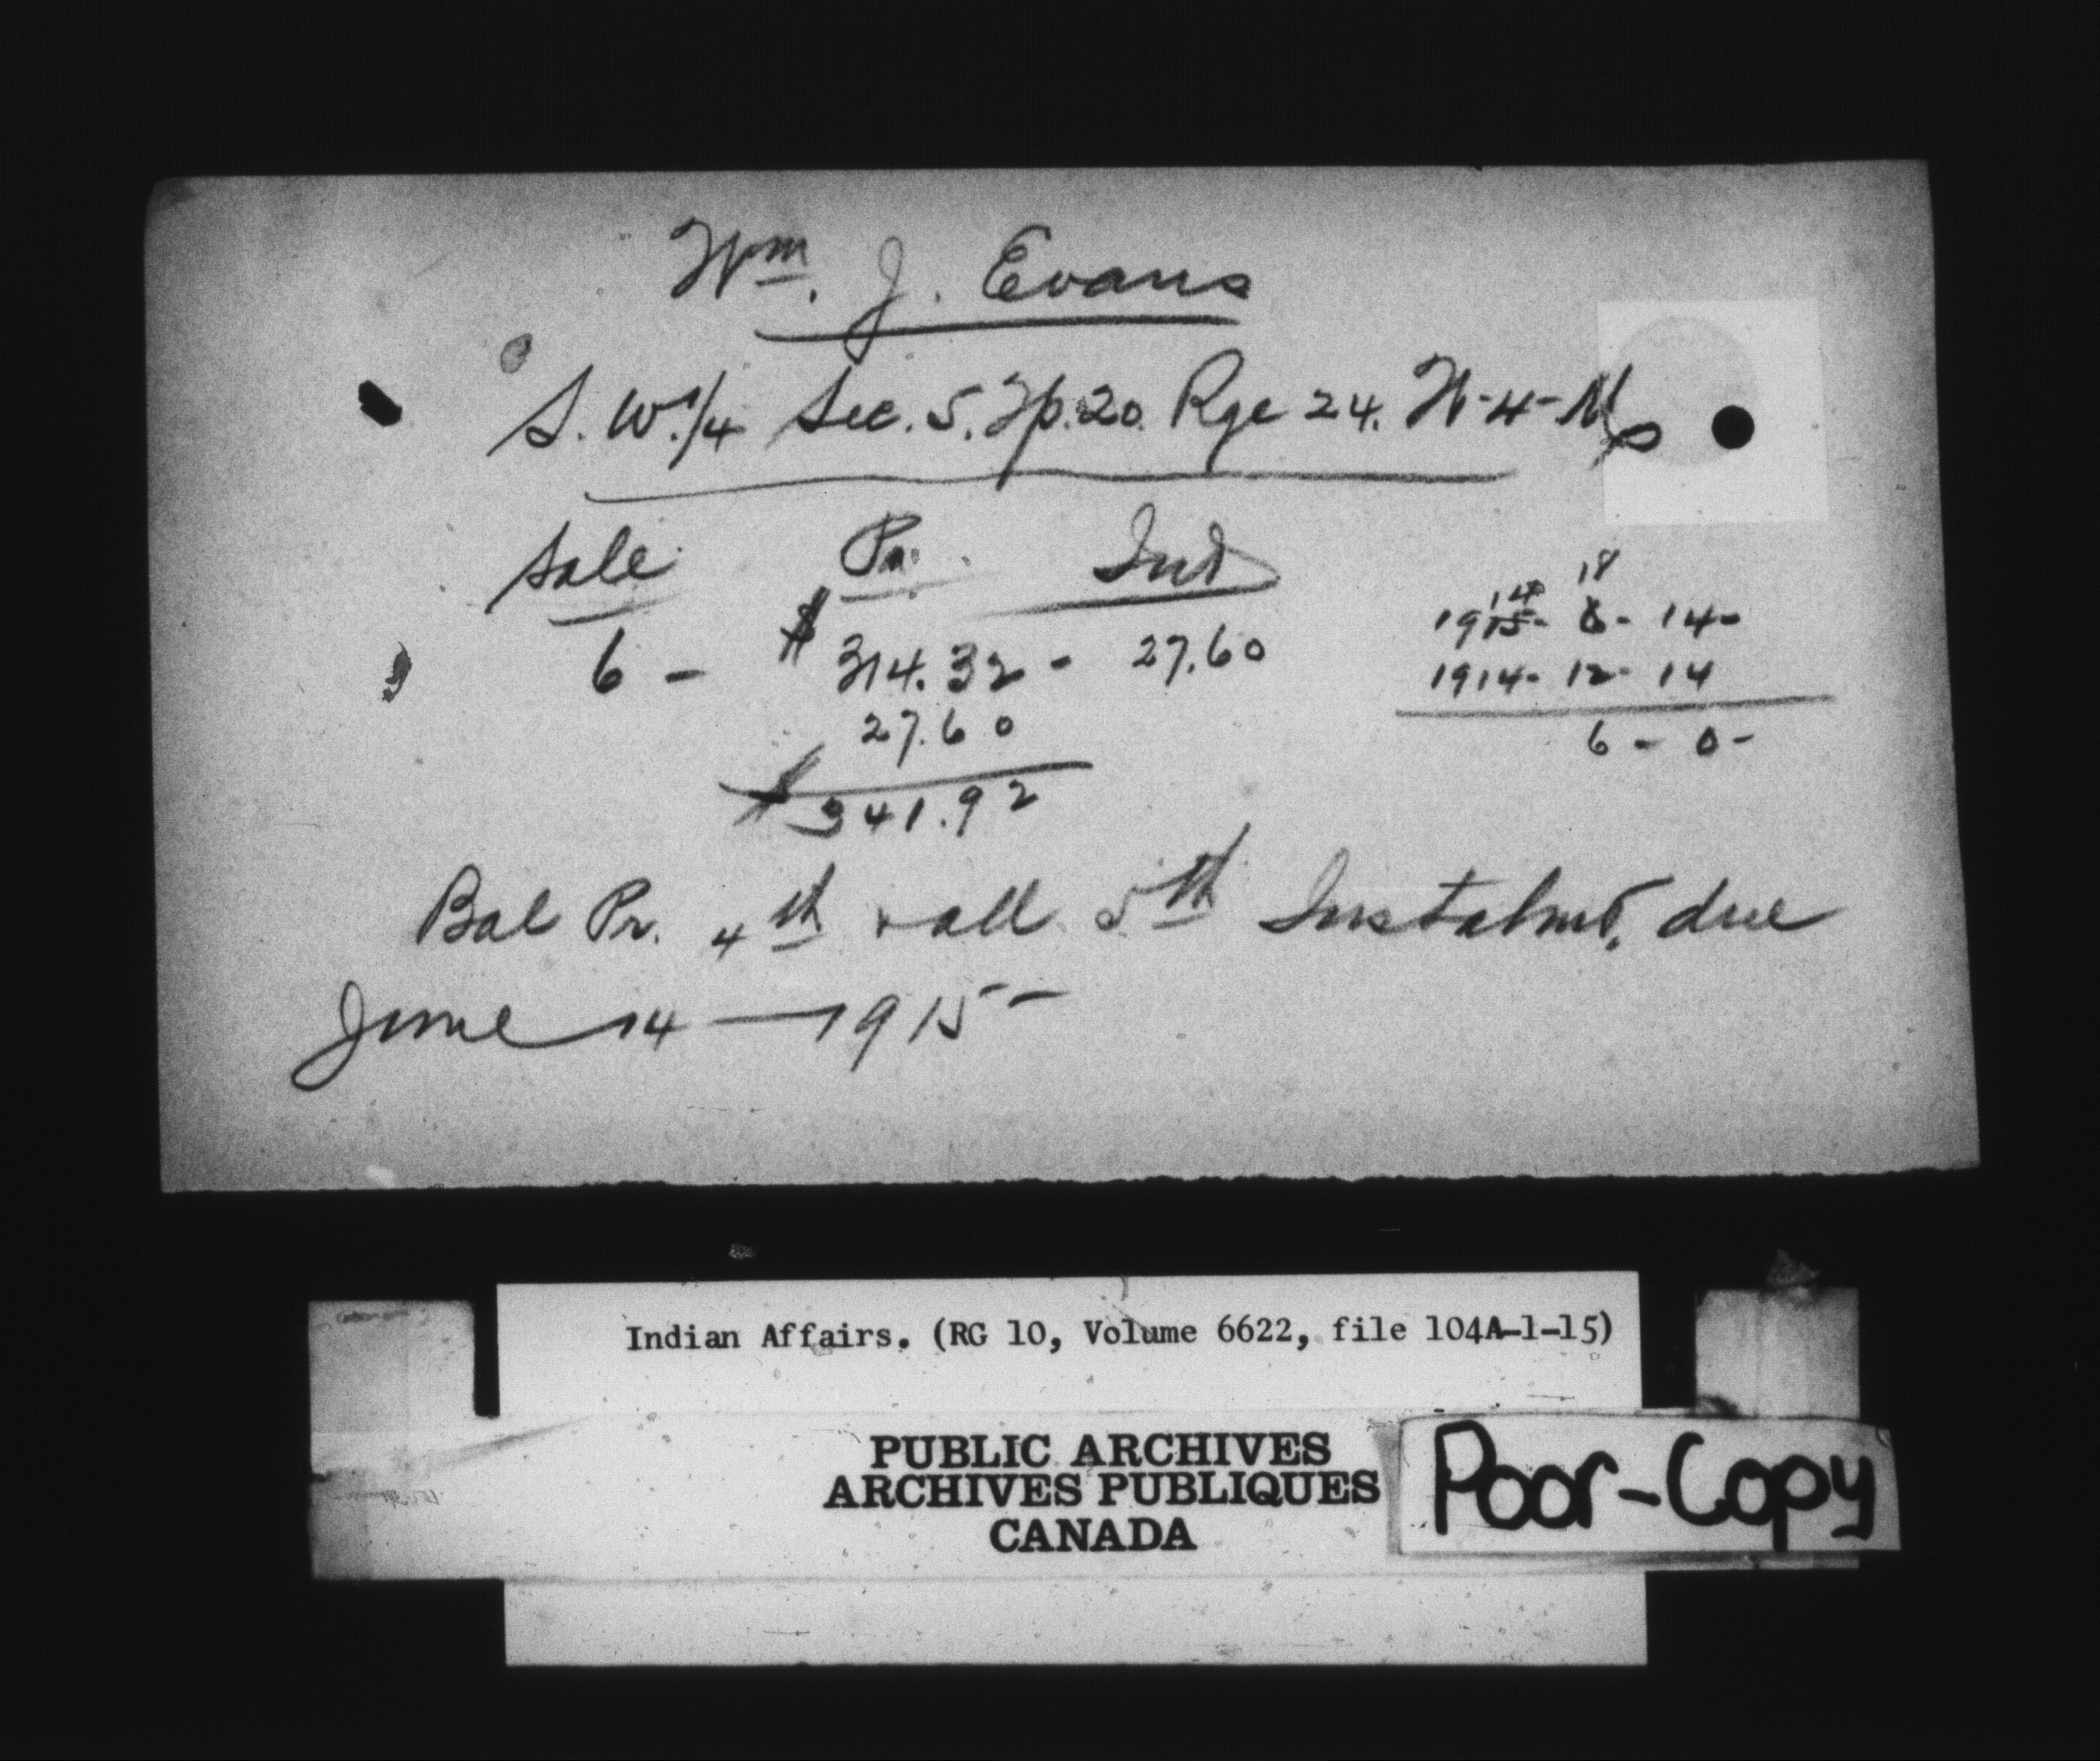 Wm. J. Evans
S. W. 1/4 Sec. 5. Tp. 20. Rge 24. W-4-M
Sale Pr. Int
6 - $ 314.32 - 27.60
27.60
$ 341.92
14 18
1915- 6- 14-
1914- 12- 14
6 - 0 -
Bal Pr. 4th & all 5th Instalmt. due
June 14 — 1915 —
Indian Affairs. (RG 10, Volume 6622, file 104A-1-15)
PUBLIC ARCHIVES
ARCHIVES PUBLIQUES
CANADA
Poor-Copy